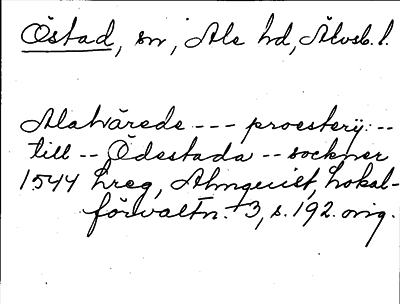 Östad, sn, Ale hd, Älvsb. l.
Alahärede --- proesterij --
till -- Ödestada -- sockner
1544 hreg, Almquist, Lokal-
förvaltn. 3, s. 192. orig.